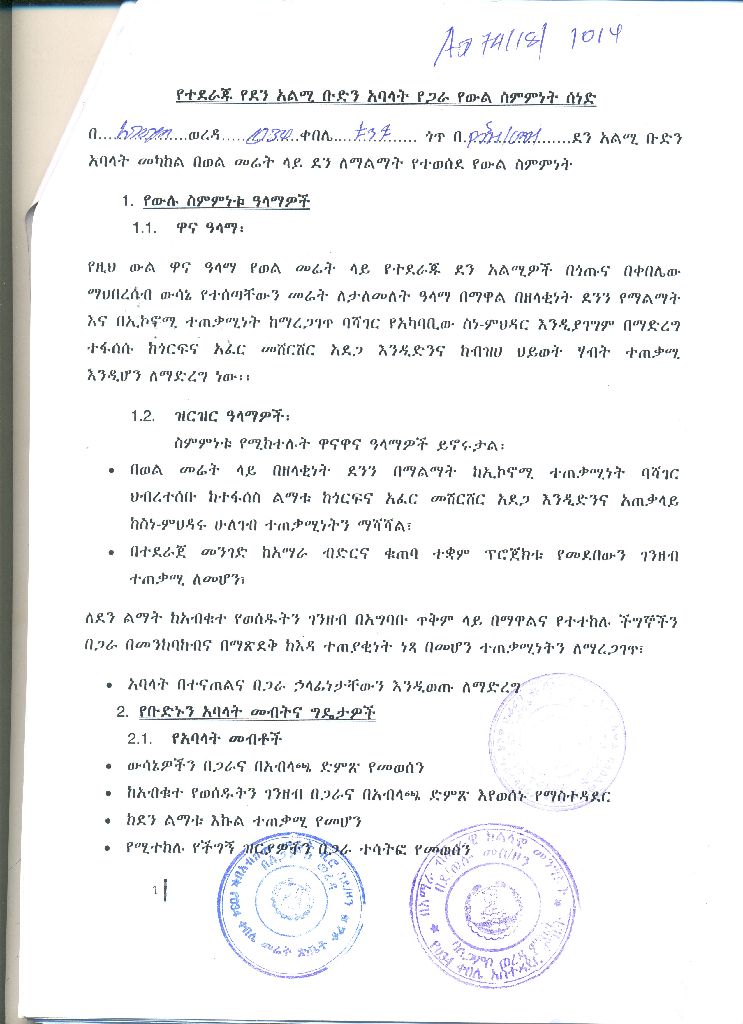 1014
የተደራጁ የደን አልሚ ቡድን አባላት የጋራ የውል ስምምነት ሰነድ
በ... ወረዳ...... ቀበሌ.... ጎጥ በ. ......ደን አልሚ ቡድን
አባላት መካከል በወል መሬት ላይ ደን ለማልማት የተወሰደ የውል ስምምነት
1. የውሉ ስምምነቱ ዓላማዎች
1.1. ዋና ዓላማ፡
የዚህ ውል ዋና ዓላማ የወል መሬት ላይ የተደራጁ ደን አልሚዎች በጎጡና በቀበሌው
ማህበረሰብ ውሳኔ የተሰጣቸውን መሬት ለታለመለት ዓላማ በማዋል በዘላቂነት ደንን የማልማት
እና በኢኮኖሚ ተጠቃሚነት ከማረጋገጥ ባሻገር የአካባቢው ስነ-ምህዳር እንዲያገግም በማድረግ
ተፋሰሱ ከጎርፍና አፈር መሸርሸር አደጋ እንዲድንና ከብዝሀ ህይወት ሃብት ተጠቃሚ
እንዲሆን ለማድረግ ነው፡፡
1.2. ዝርዝር ዓላማዎች፡
ስምምነቱ የሚከተሉት ዋናዋና ዓላማዎች ይኖሩታል፡
• በወል መሬት ላይ በዘላቂነት ደንን በማልማት ከኢኮኖሚ ተጠቃሚነት ባሻገር
ህብረተሰቡ ከተፋሰስ ልማቱ ከጎርፍና አፈር መሸርሸር አደጋ እንዲድንና አጠቃላይ
ከስነ-ምህዳሩ ሁለገብ ተጠቃሚነትን ማሻሻል፣
• በተደራጀ መንገድ ከአማራ ብድርና ቁጠባ ተቋም ፕሮጀክቱ የመደበውን ገንዘብ
ተጠቃሚ ለመሆን፣
ለደን ልማት ከአብቁተ የወሰዱትን ገንዘብ በአግባቡ ጥቅም ላይ በማዋልና የተተከሉ ችግኞችን
በጋራ በመንከባከብና በማጽደቅ ከእዳ ተጠያቂነት ነጻ በመሆን ተጠቃሚነትን ለማረጋገጥ፣
• አባላት በተናጠልና በጋራ ኃላፊነታቸውን እንዲወጡ ለማድረግ
2. የቡድኑን አባላት መብትና ግዴታዎች
2.1. የአባላት መብቶች
• ውሳኔዎችን በጋራና በአብላጫ ድምጽ የመወሰን
• ከአብቁተ የወሰዱትን ገንዘብ በጋራና በአብላጫ ድምጽ እየወሰኑ የማስተዳደር
• ከደን ልማቱ እኩል ተጠቃሚ የመሆን
• የሚተከሉ የችግኝ ዝርያዎችን በጋራ ተሳትፎ የመወሰን
1